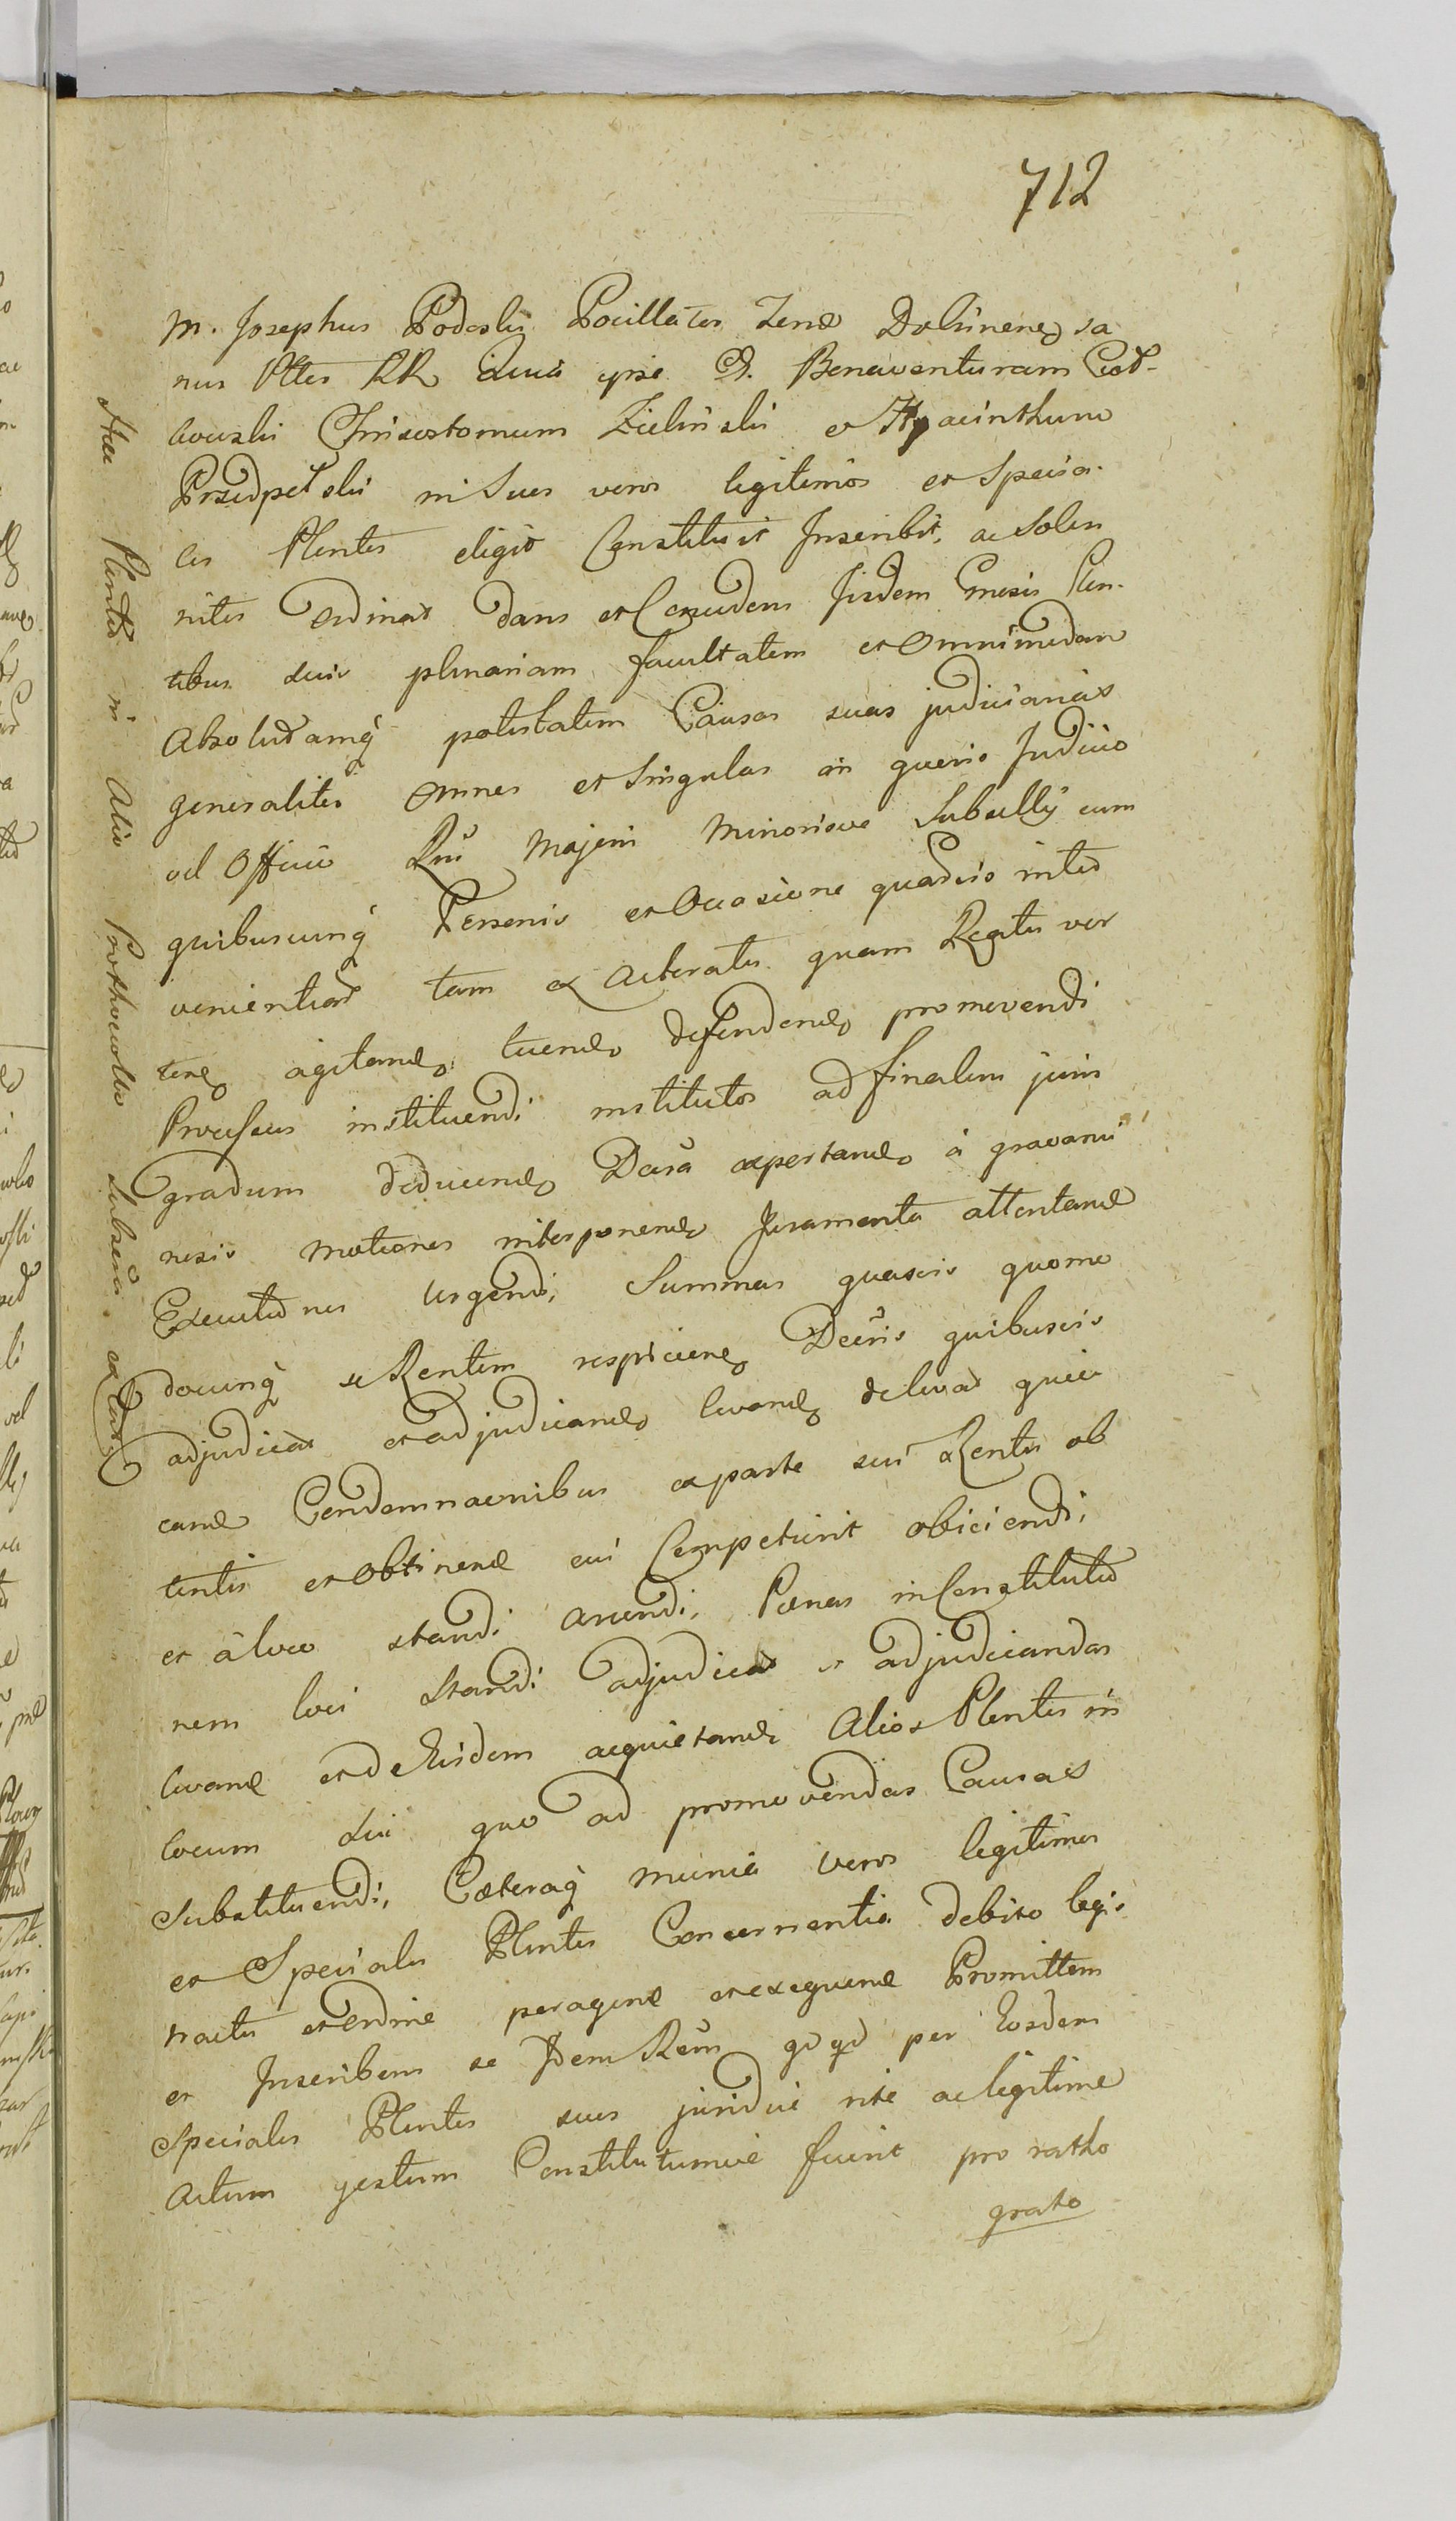 712
M. Josephus Podoski Pocillator Terrae Dobrinen sa
nus Pttes RR Quia ipse G. Bonaventuram God-
lewski Chrisostomum Zielinski et Hyacinthum
Przedpełski in Suos veros legitimos et Specia-
les Plentes eligit Constituit Inscribit, ac Solen
niter Ordinat dans et Concedens Iisdem Gnosis Plen-
tibus suis plenariam facultatem et Omnimodam
Absolutamq potestatem Causas suas judiciarias
generaliter Omnes et Singulas in quovis Judicio
vel Officio Rni Majoris Minorisve Subsellij cum
quibuscunq Personis et Occasione quavis inter
venientes tam ex Actoratu quam Reatu ver
tend agitand tuend defendend promovendi
Processus instituendi institutos ad finalem juris
gradum deducend Dcra exportand à gravami
nosis motiones interponend Juramenta attentand
Executiones Urgendi, Summas quasvis quomo
docunq se Rentem respicien Decris quibusvis
adjudicat et adjudicand levand de levat quie
tand Condemnaonibus ex parte sui Rentis ob
tentis et obtinend cui Competierit obiiciendi,
et à loco standi arcendi, Poenas in Constitutio
nem loci standi adjudicat et adjudicandas
levand et de Eisdem acquietand Alios Plentes in
locum sui quo ad promovendas Causas
Substituendi, Caeteraq munia veros legitimos
et Speciales Plentes Concernentia debito legis
tractu et Ordine peragend et exequend Promittens
et Inscribens se Idem Rens qd qd per Eosdem
Speciales Plentes suos juridice rite ac legitime
Actum gestum Constitutumve fuerit pro ratho
grato
Hae Plentes in Alio Prothocollo Subscr extant